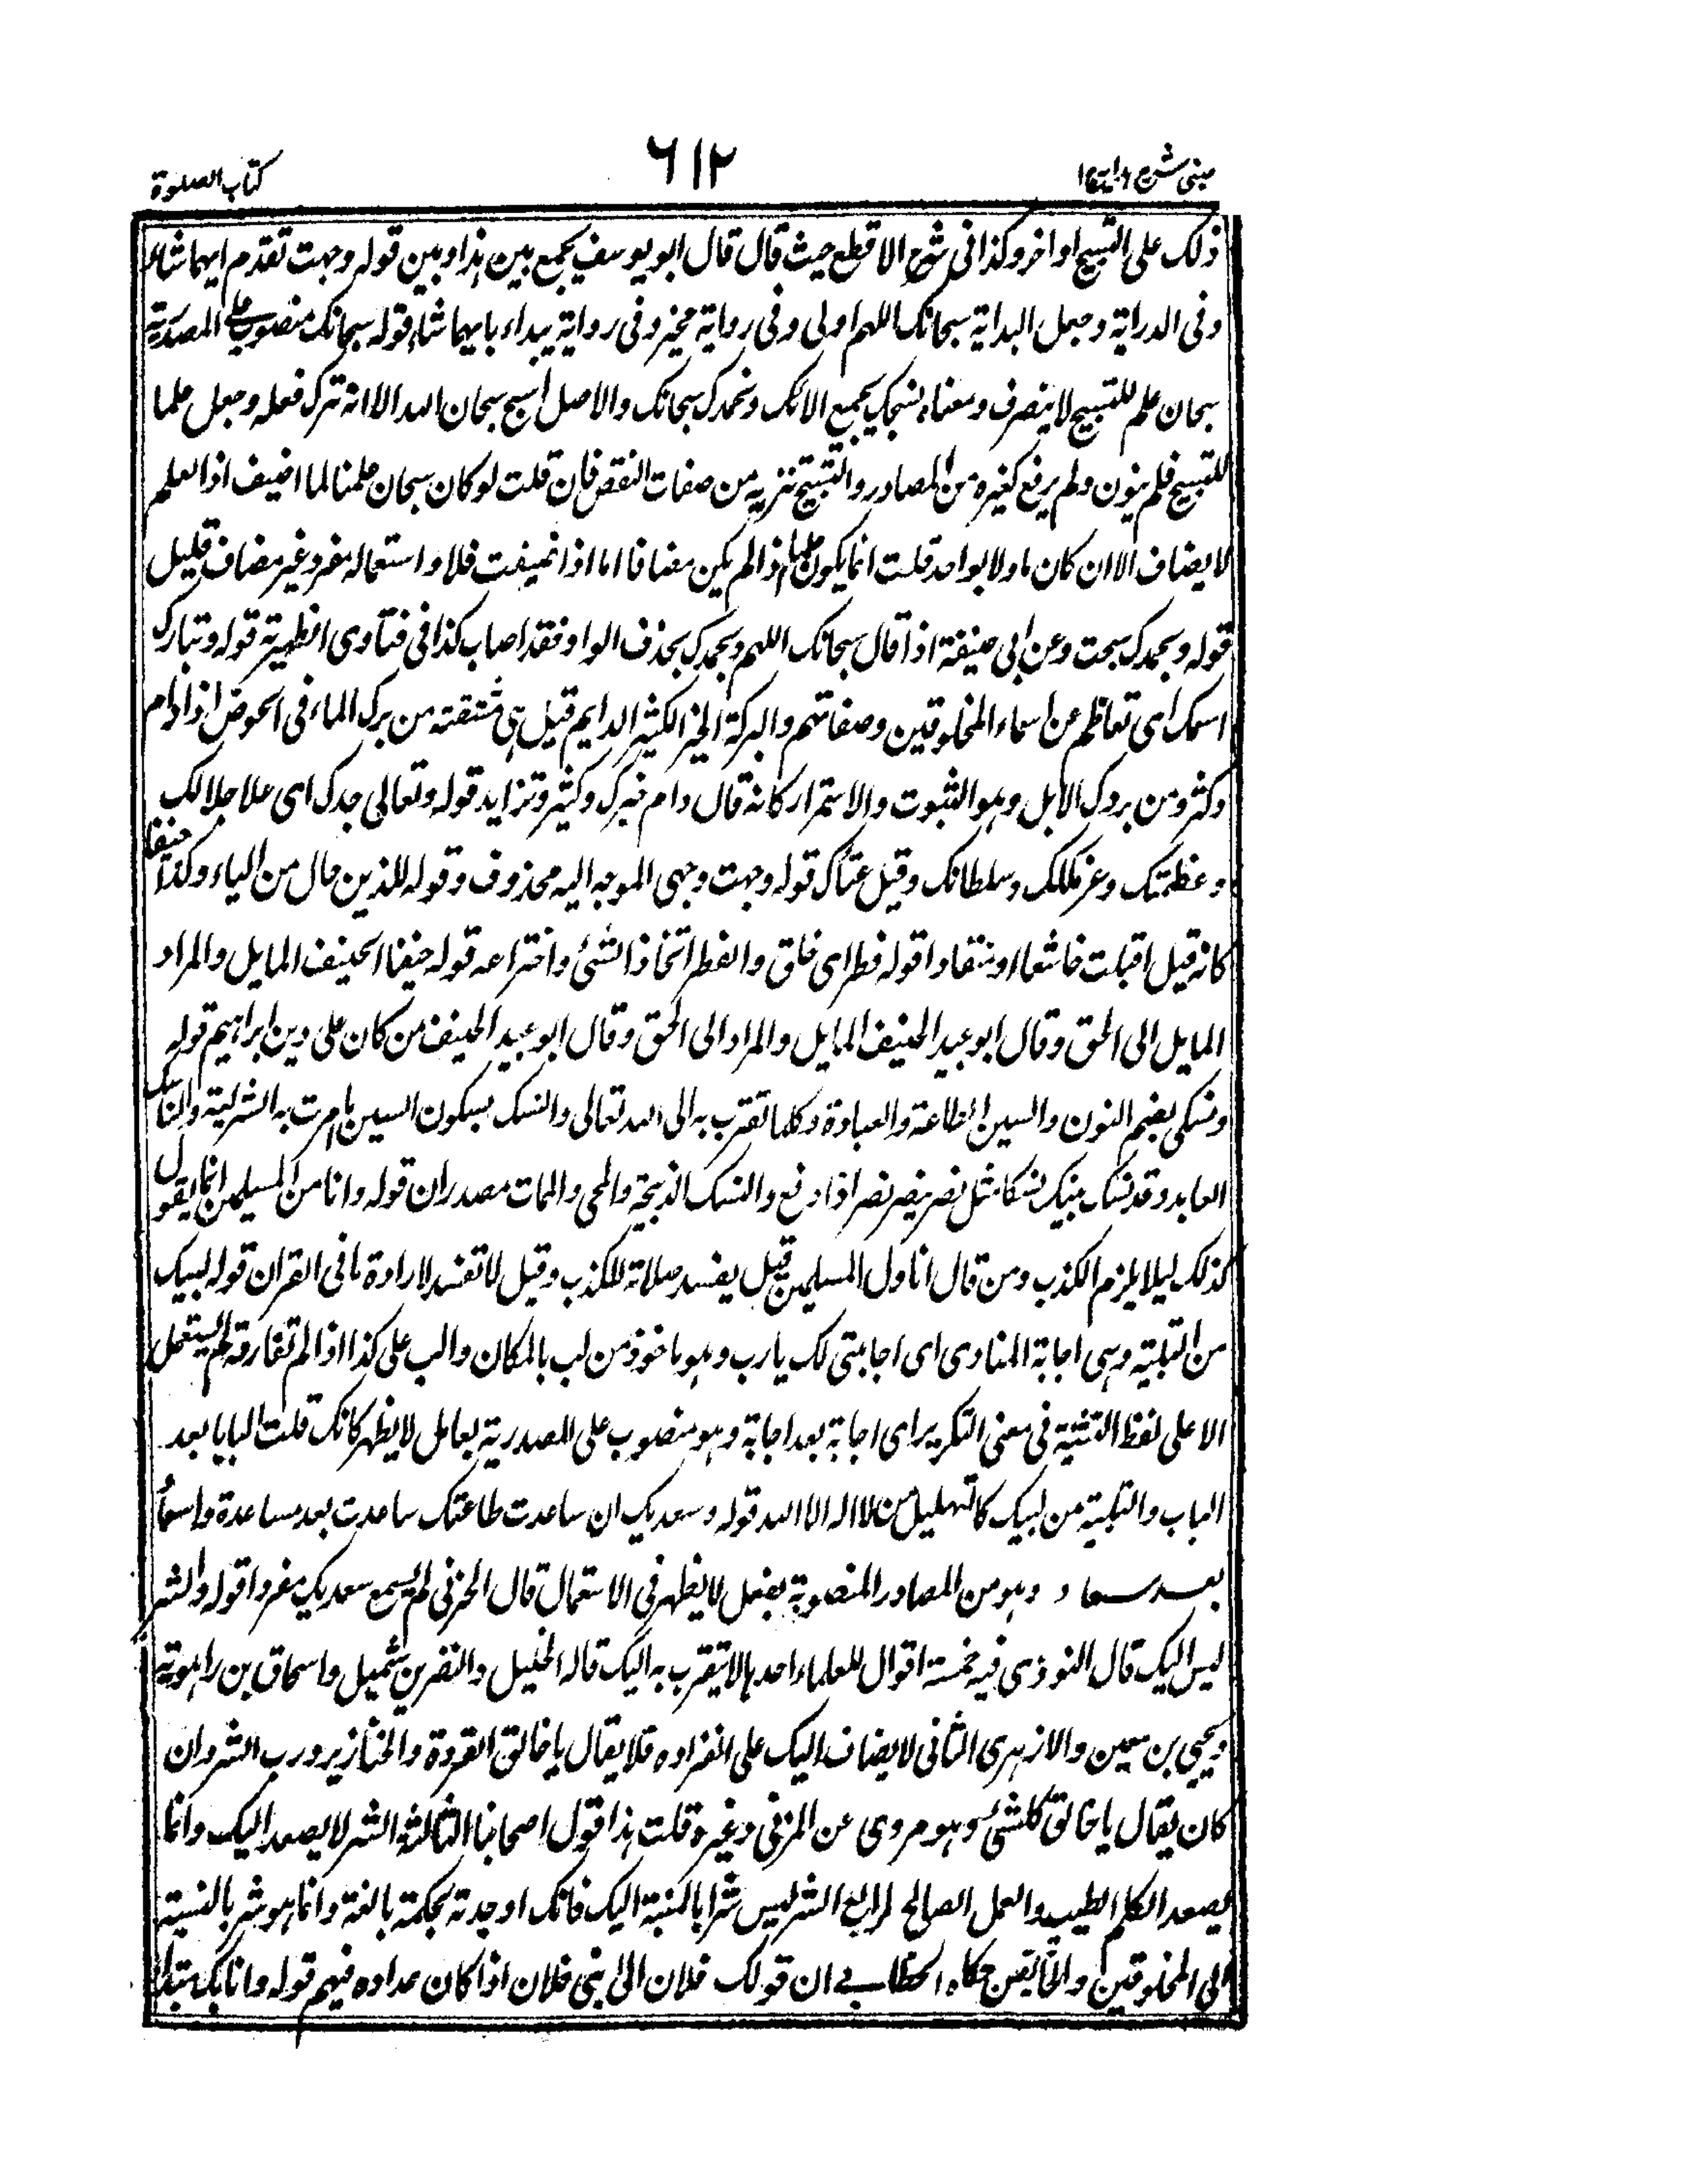 عینی شرح ہدایة ج۱
٦١٢
کتاب الصلوة
ذلک علی التسبیح او اخر وکذا فی شرح الاقطع حیث قال قال ابو یوسف یجمع بین ہذا وبین قوله وجهت تقدم ایهما شاء
وفی الدرایة وجعل البدایة سبحانک اللهم اولی وفی روایة مخیر وفی روایة یبداء بایهما شاء قوله سبحانک منصوب علی المصدریة
سبحان علم للتسبیح لا ینصرف ومعناه نسبحک بجمیع الائک ونحمدک سبحانک والاصل اسبح سبحان الله الا انه ترک فعله وجعل علما
للتسبیح فلم ینون ولم یرفع کغیره من المصادر والتسبیح تنزیه من صفات النقص فان قلت لو کان سبحان علمنا لما اضیف اذ العلم
لا یضاف الا ان کان ماولا بواحد قلت انما یکون علما اذا لم یکن مضافا اما اذا اضیفت فلا واستعماله مفرد غیر مضاف قلیل
قوله وبحمدک سبحت وعن ابی حنیفة اذا قال سبحانک اللهم وبحمدک بحذف الواو فقد اصاب کذا فی فتاوی الظهیریة قوله وتبارک
اسمک ای تعاظم عن اسماء المخلوقین وصفاتهم والبرکة الخیر الکثیر الدایم قیل ہی مشتقته من برک الماء فی الحوض اذا دام
وکثر ومن بروک الابل وہو الثبوت والاستمرار کانه قال دام خیرک وکثیر وتزاید قوله وتعالی جدک ای علا جلالک
وعظمتک وعز ملکک وسلطانک وقیل غناک قوله وجهت وجهی الموجه الیه محذوف وقوله للذین حال من الیاء وکذا حنیفا
کانه قیل اقبلت خاشعا او منقادا قوله فطر ای خلق والفطر اتخاذ الشئ واختراعه قوله حنیفا الحنیف المایل والمراد
المایل الی الحق وقال ابو عبید الحنیف المایل والمراد الی الحق وقال ابو عبید الحنیف من کان علی دین ابراہیم قوله
ونسکی بضم النون والسین الطاعة والعبادة وکلما تقرب به الی الله تعالی والنسک بسکون السین ما امرت به الشریعة والناسک
العابد وقد نسک ینسک نسکا مثل نصر ینصر نصرا اذا دفع والنسک الذبیحة والمحی والممات مصدران قوله وانا من المسلمین انما یقول
کذلک لیلا یلزم الکذب ومن قال انا اول المسلمین قیل یفسد صلاته للکذب وقیل لا تفسد لارادة ما فی القران قوله لبیک
من التلبیة وہی اجابة المنادی ای اجابتی لک یا رب وہو ماخوذ من لب بالمکان والب علی کذا اذا لم تفارقه لم یستعمل
الا علی لفظ التثنیة فی معنی التکریر ای اجابة بعد اجابة وہو منصوب علی المصدریة بعامل لا یظهر کانک قلت البابا بعد
الباب والتلبیة من لبیک کالتهلیل من لا اله الا الله قوله وسعدیک ان ساعدت طاعتک ساعدت بعد مساعدة واسعاد
بعد اسعاد وہو من المصادر المنصوبة بفعل لا یظهر فی الاستعمال قال الحزنی لم یسمع سعدیک مفردا قوله والشر
لیس الیک قال النووی فیه خمسة اقوال للعلماء احدها لا یتقرب به الیک قاله الخلیل والنضر بن شمیل واسحاق بن راہویه
ویحیی بن معین والازہری الثانی لا یضاف الیک علی انفراده فلا یقال یا خالق القردة والخنازیر ورب الشر وان
کان یقال یا خالق کلشئ وہو مروی عن المزنی وغیره قلت ہذا قول اصحابنا الثالث الشر لا یصعد الیک وانما
یصعد الکلم الطیب والعمل الصالح الرابع الشر لیس شرا بالنسبة الیک فانک اوجدته بحکمة بالغة وانما ہو شر بالنسبة
الی المخلوقین والخامس حکاه الخطابی ان قولک فلان الی بنی فلان اذا کان عداده فیهم قوله وانا بک